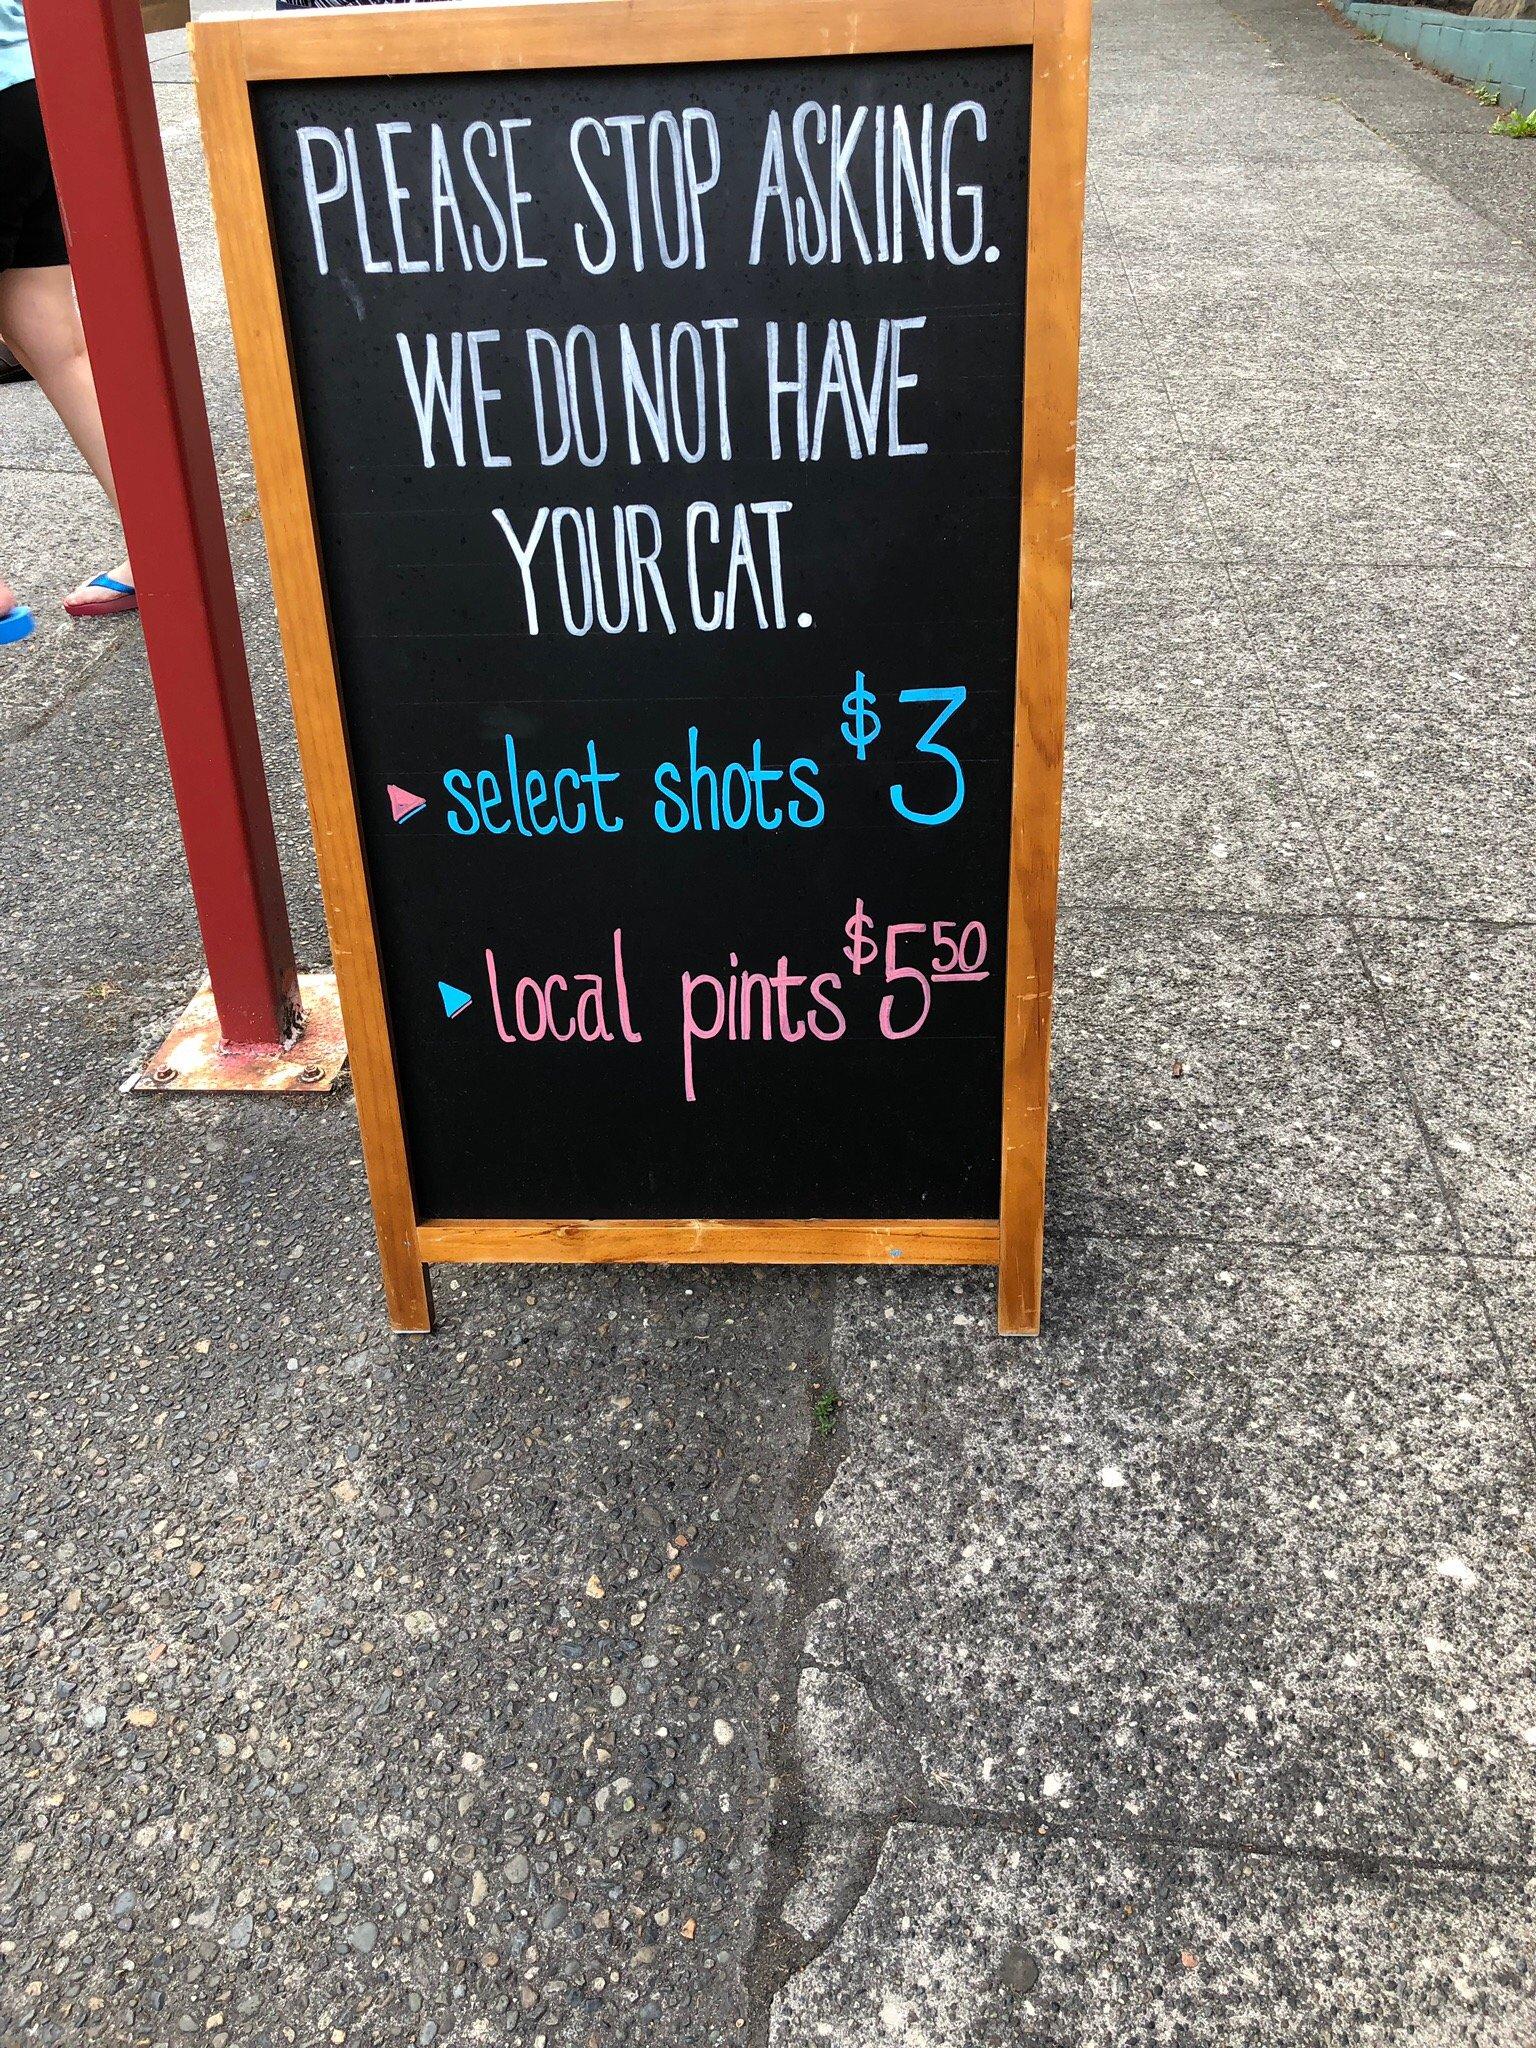 PLEASE STOP ASKING.
WE DO NOT HAVE
YOUR CAT.
select shots $3
local pints $5 50